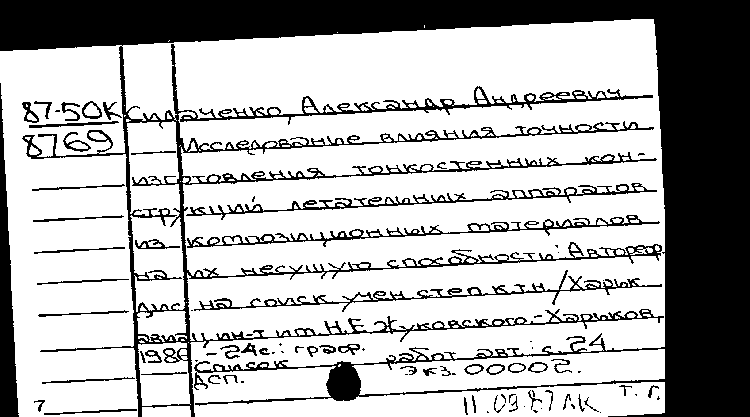 87-50К Силаченко, Александр Андреевич
8769 Исследование влияния точности
изготовления тонкостенных кон-
струкций летательных аппаратов
из композиционных материалов
на их несущую способности: Автореф
дис на соиск учен степ к.т.н./Харьк
авиац ин-т им Н.Е Жуковского.-Харьков,
1986 -24с.: граф.
Список работ авт.: с.24.
дсп. Экз.00002.
7 11.09.87 ЛК Т. Г.